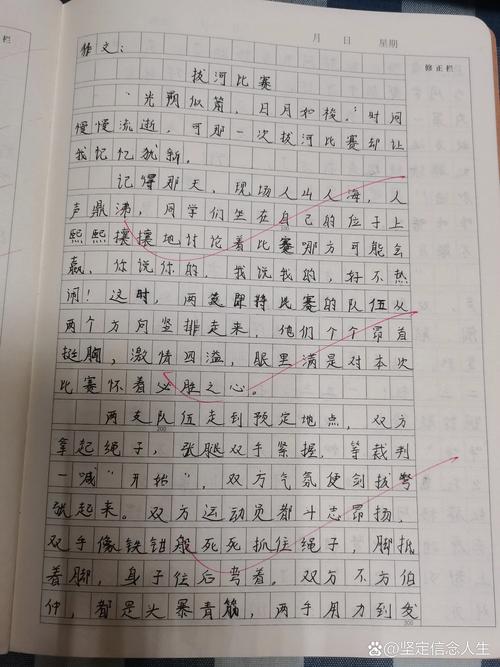 月 日 星期
修正栏
作文：
拔河比赛
“光阴似箭，日月如梭。”时间
慢慢流逝，可那一次拔河比赛却让
我记忆犹新。
记得那天，现场人山人海，人
声鼎沸，同学们坐在自己的位子上
100
熙熙攘攘地讨论着比赛哪方可能会
赢，你说你的，我说我的，好不热
闹！这时，两支即将比赛的队伍从
两个方向竖排走来，他们个个昂着
挺胸，激情四溢，眼里满是对本次
比赛怀着必胜之心。
两支队伍走到预定地点，双方
200
拿起绳子，张腿双手紧握，等裁判
一喊“开始”，双方气氛便剑拔弩
张起来。双方运动员都斗志昂扬，
双手像铁钳般死死抓住绳子，脚抵
着脚，身子往后弯着。双方不方伯
仲，都是大暴青筋，两手用力到发
300
@坚定信念人生